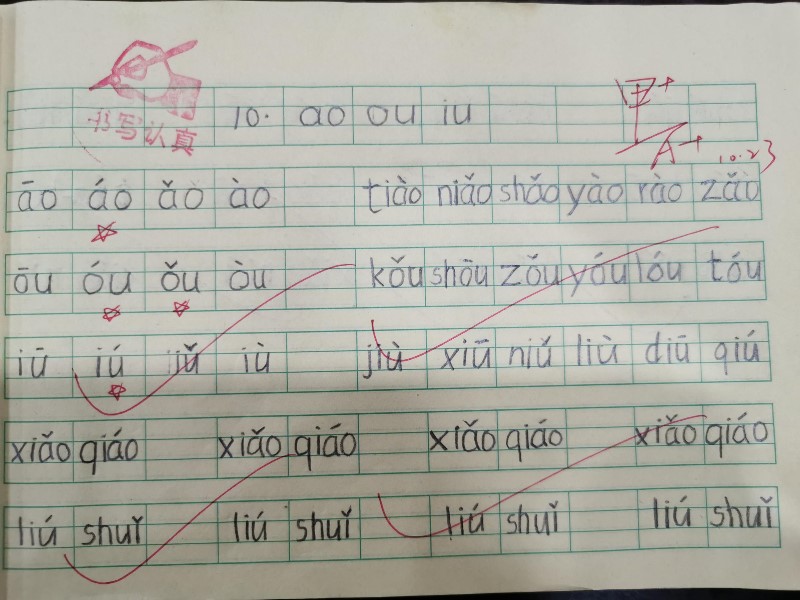 书写认真
10. ao ou iu
甲+
A+
10.23
āo áo ǎo ào tiào niǎo shǎo yào rào zǎo
ōu óu ǒu òu kǒu shōu zǒu yóu lóu tóu
iū iú iǔ iù jiù xiū niú liù diū qiú
xiǎo qiáo xiǎo qiáo xiǎo qiáo xiǎo qiáo
liú shuǐ liú shuǐ liú shuǐ liú shuǐ